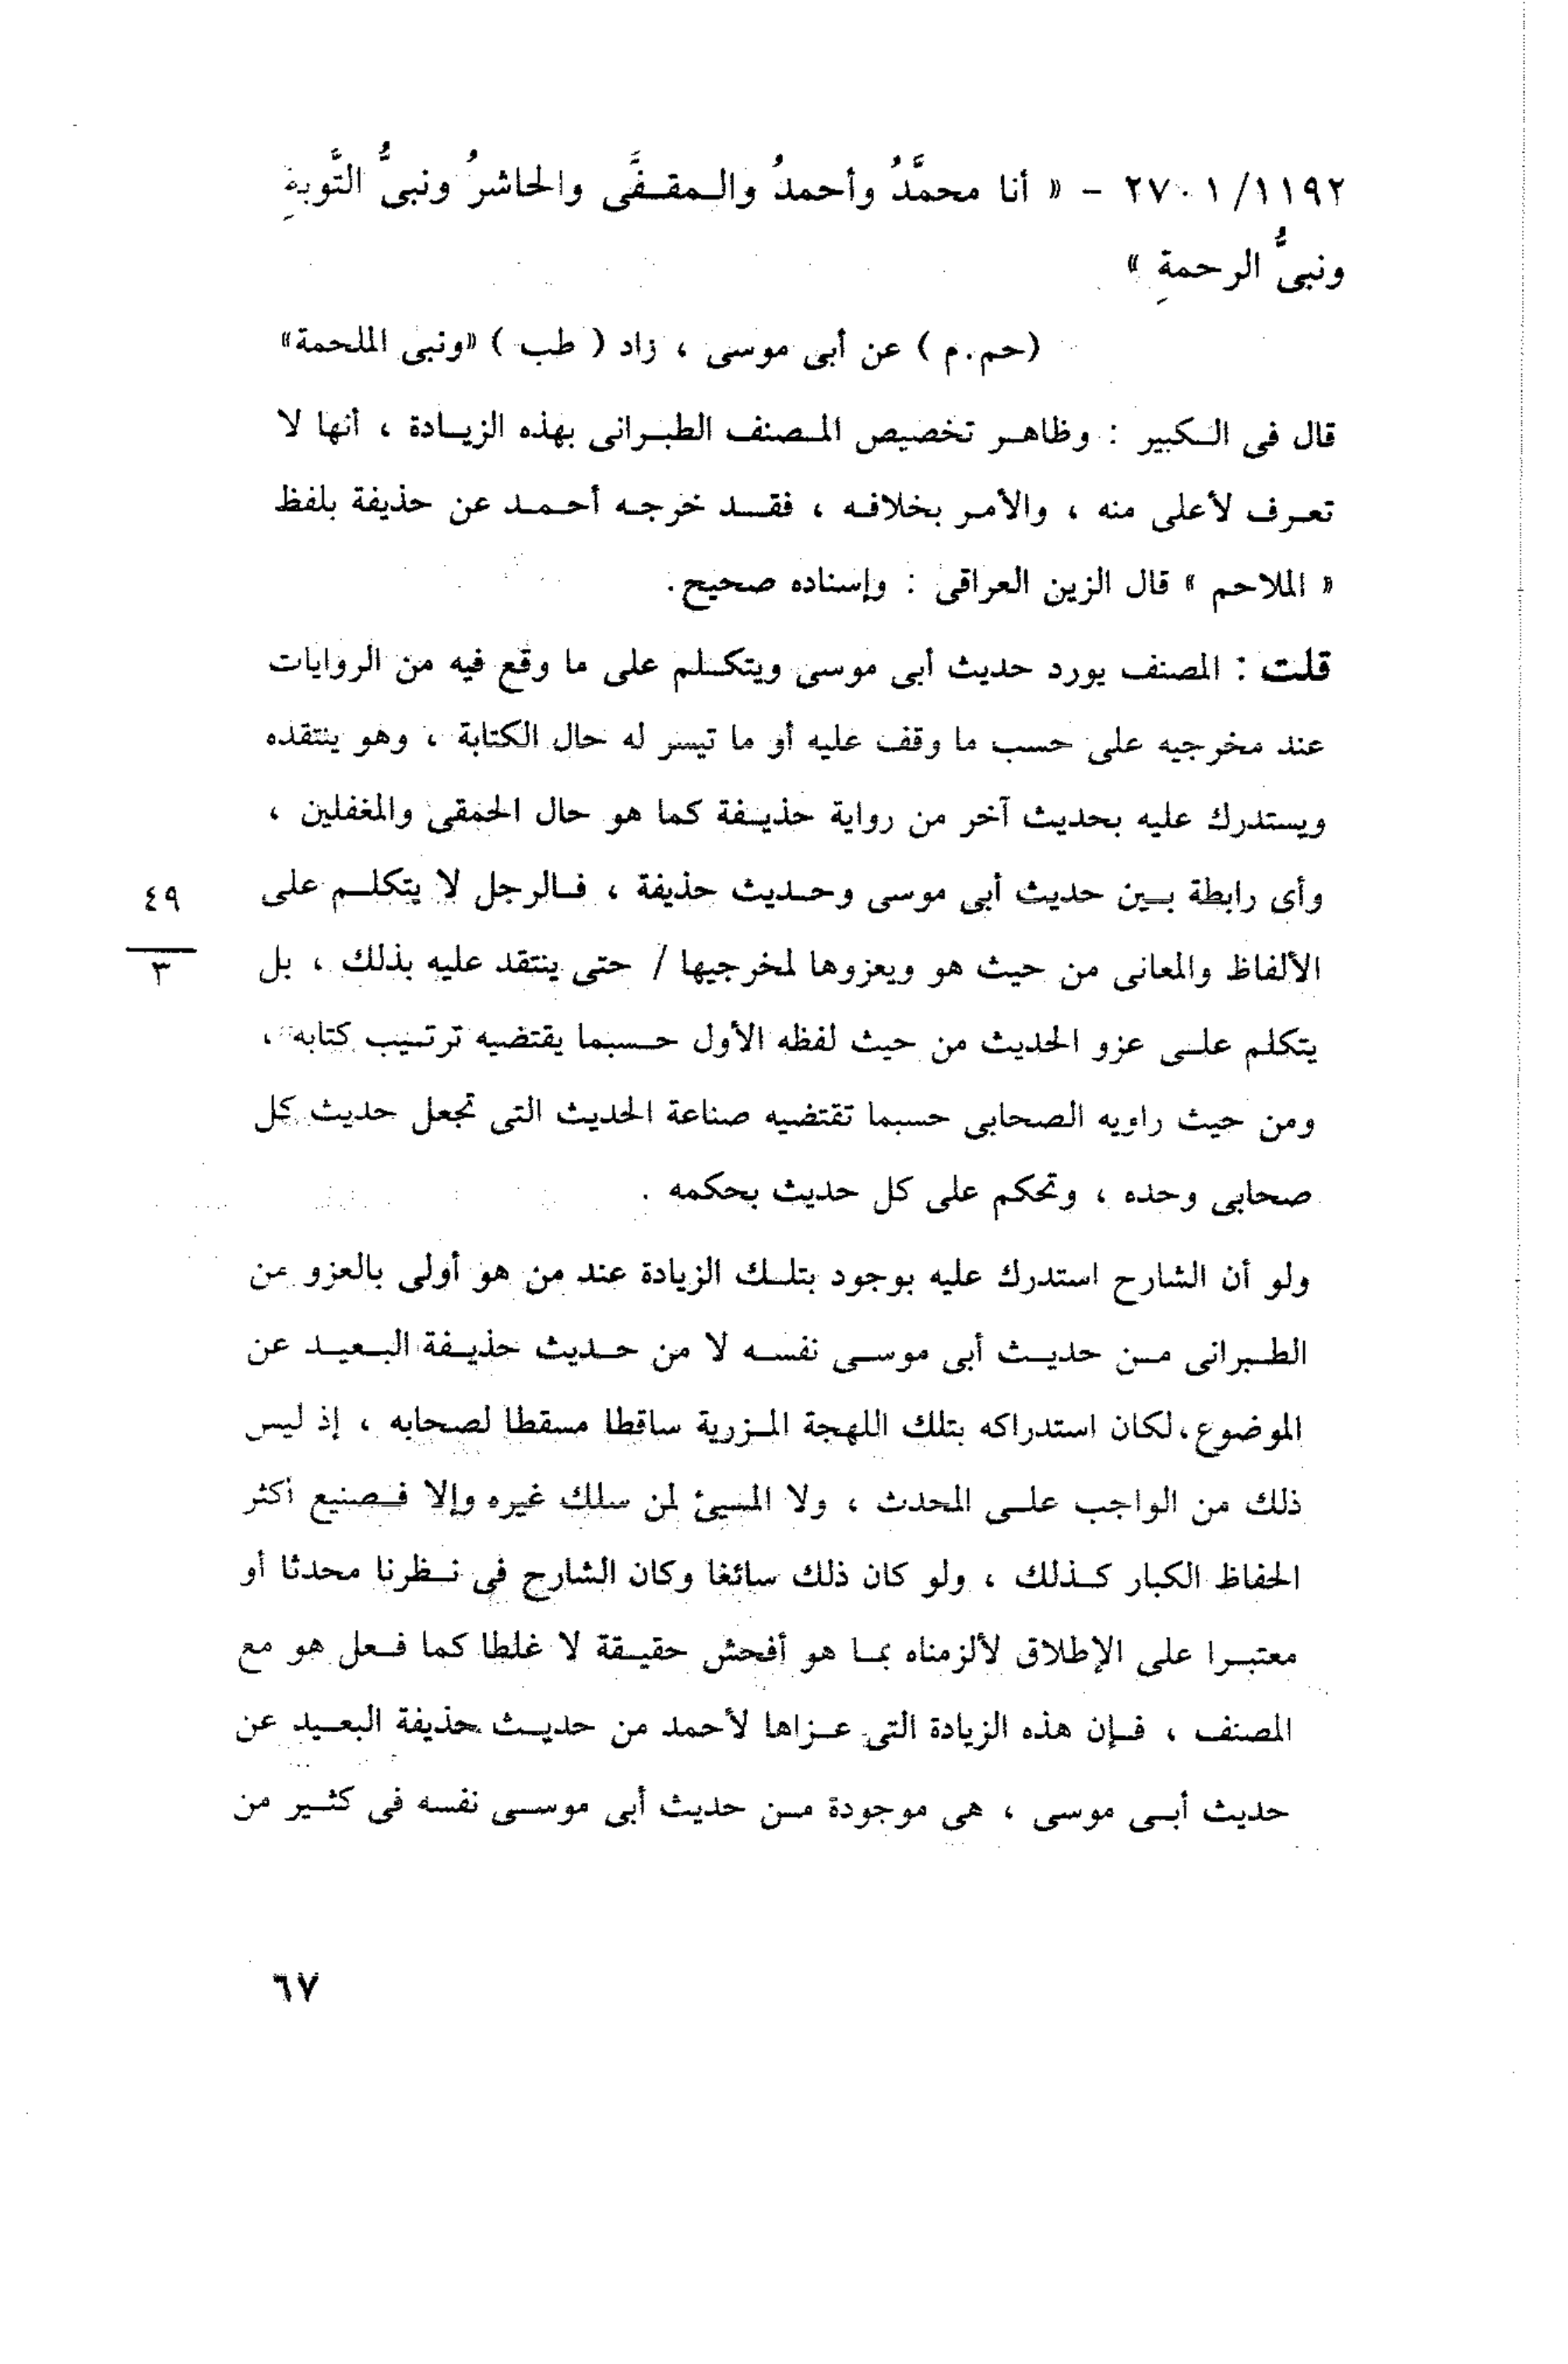 ٢٧٠١/١١٩٢ - « أنا محمَّدُ وأحمدُ والمقفَّى والحاشرُ ونبىُّ التَّوبةِ
ونبىُّ الرحمةِ »
(حم.م ) عن أبى موسى ، زاد ( طب ) «ونبى الملحمة»
قال فى الكبير : وظاهر تخصيص المصنف الطبرانى بهذه الزيادة ، أنها لا
تعرف لأعلى منه ، والأمر بخلافه ، فقد خرجه أحمد عن حذيفة بلفظ
« الملاحم » قال الزين العراقى : وإسناده صحيح.
قلت : المصنف يورد حديث أبى موسى ويتكلم على ما وقع فيه من الروايات
عند مخرجيه على حسب ما وقف عليه أو ما تيسر له حال الكتابة ، وهو ينتقده
ويستدرك عليه بحديث آخر من رواية حذيفة كما هو حال الحمقى والمغفلين ،
وأى رابطة بين حديث أبى موسى وحديث حذيفة ، فالرجل لا يتكلم على
٤٩
٣
الألفاظ والمعانى من حيث هو ويعزوها لمخرجيها / حتى ينتقد عليه بذلك ، بل
يتكلم على عزو الحديث من حيث لفظه الأول حسبما يقتضيه ترتيب كتابه ،
ومن حيث راويه الصحابى حسبما تقتضيه صناعة الحديث التى تجعل حديث كل
صحابى وحده ، وتحكم على كل حديث بحكمه .
ولو أن الشارح استدرك عليه بوجود بتلك الزيادة عند من هو أولى بالعزو من
الطبرانى من حديث أبى موسى نفسه لا من حديث حذيفة البعيد عن
الموضوع،لكان استدراكه بتلك اللهجة المزرية ساقطا مسقطا لصحابه ، إذ ليس
ذلك من الواجب على المحدث ، ولا المسيئ لمن سلك غيره وإلا فصنيع أكثر
الحفاظ الكبار كذلك ، ولو كان ذلك سائغا وكان الشارح فى نظرنا محدثا أو
معتبرا على الإطلاق لألزمناه بما هو أفحش حقيقة لا غلطا كما فعل هو مع
المصنف ، فإن هذه الزيادة التى عزاها لأحمد من حديث حذيفة البعيد عن
حديث أبى موسى ، هى موجودة من حديث أبى موسى نفسه فى كثير من
٦٧